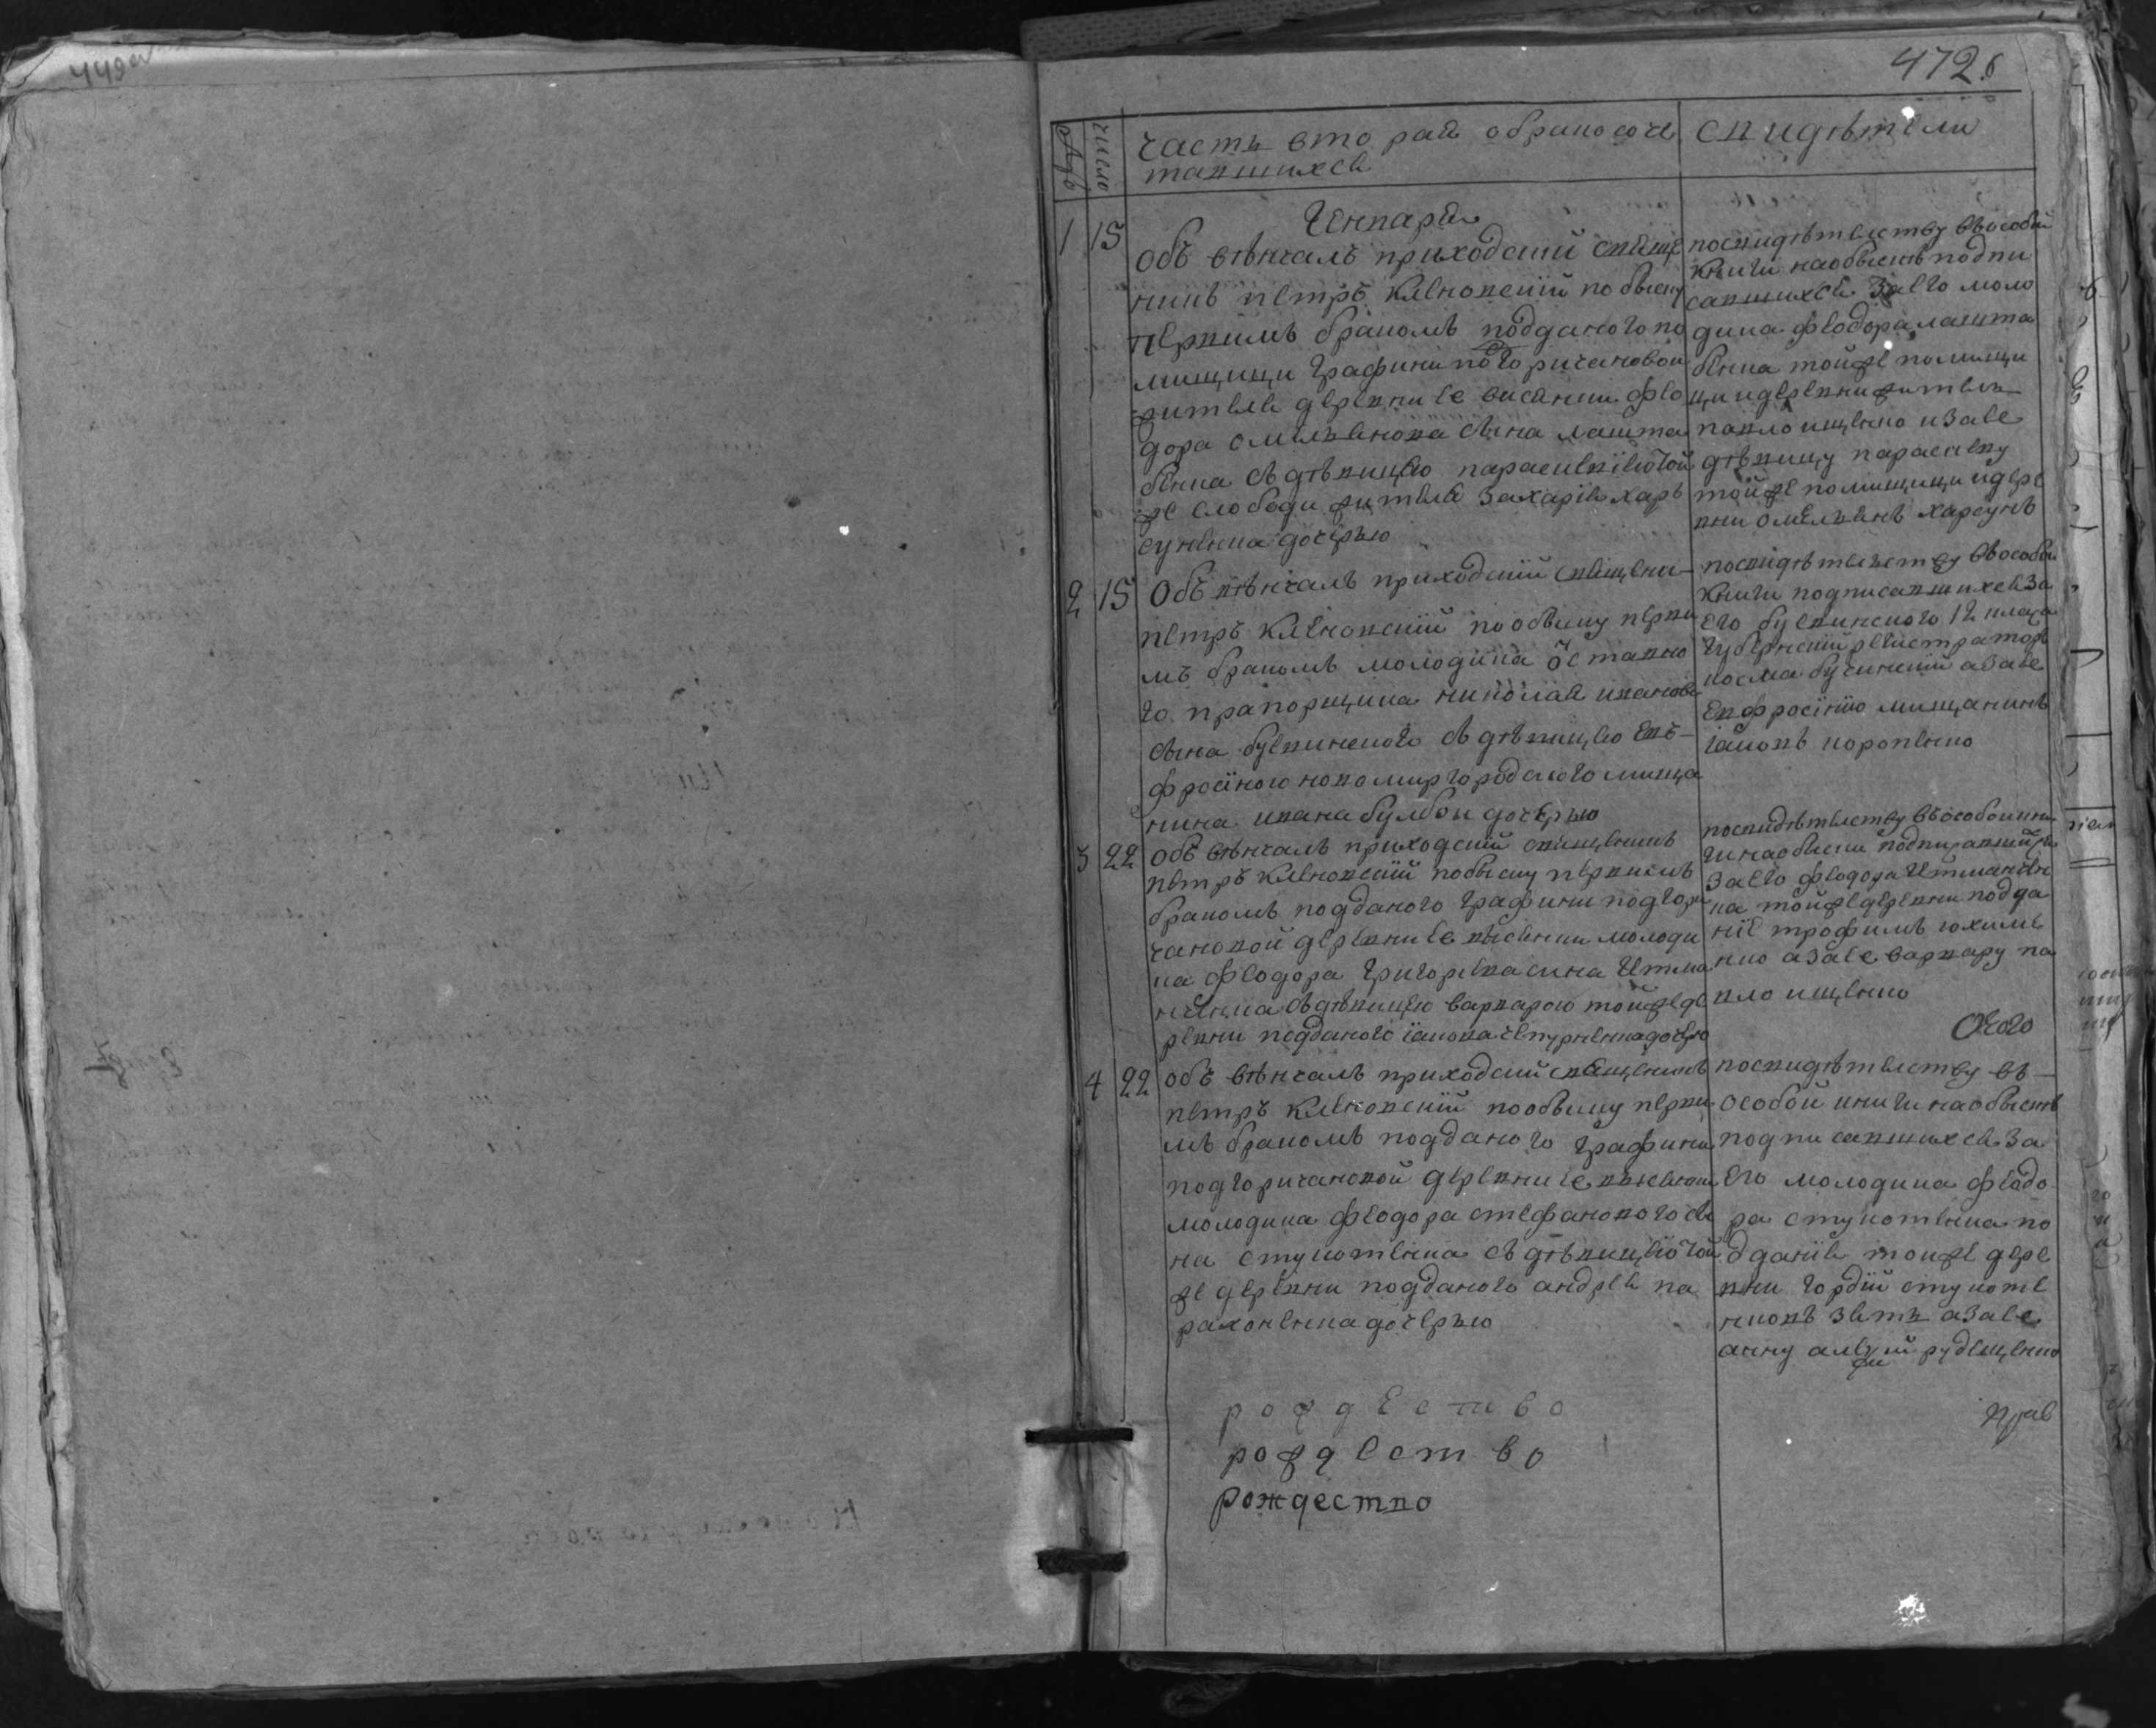 449
472.
Адъ
число
часть вторая обракосоче
тавшихся
свидѣтели
Генваря
1 15
объ вѣнчалъ приходский свяще
никъ петръ кляновский по обыску
первимъ бракомъ подданого по
мищици графини подгоричановой
жителя деревни ее висянки фео
дора омельянова сына лашта
бенка съ дѣвицею параскевіею той
же слободи жителя захарія хар
сунѣнка дочерью
посвидѣтелству въ особой
книги на обыскѣ подпи
савшихся за его моло
дика феодора лашта
бенка той же помищи
ци и деревни житель
павло ищенко и за ее
дѣвицу параскеву
той же помищици и дере
вни омельянъ харсунъ
2 15
Объ вѣнчалъ приходский священи
петръ кляновский по обыску перви
мъ бракомъ молодика отставно
го прапорщика николая иванова
сына буевинского съ дѣвицею ев
фросиною новомиргородского мища
нина ивана булбои дочерью
посвидѣтелству въ особой
книги подписавшихся за
его буевинского 12 класа
губернский регистраторъ
косма бучинский а за ее
евфросинию мищанинъ
іаковъ коропенко
3 22
объ вѣнчалъ приходский священикъ
петръ кляновский по обыску первимъ
бракомъ подданого графини подгори
чановой деревни ее висянки молоди
ка феодора григориева сина Итма
ненка съ дѣвицею варварою той же де
ревни подданого іакова чепурненка дочерю
посвидѣтелству въ особои кни
ги на обыски подписавшийся
за его феодора Итманен
ка той же деревни подда
ніе трофимъ юхиме
нко а за ее варвару па
вло ищенко
4 22
объ вѣнчалъ приходский священикъ
петръ кляновский по обыску перви
мъ бракомъ подданого графини
подгоричановой деревни ее висянки
молодика феодора стефанового сы
на стукотенка съ дѣвицею той
же деревни подданого андрея па
рахоненка дочерью
посвидѣтелству въ
особой книги на обыскѣ
подписавшихся за
его молодика феодо
ра стукотенка по
дданія той же дере
вни гордій стукоте
нковъ зять а за ее
анну алексѣй рудещенко
рождество
рождество
рождество